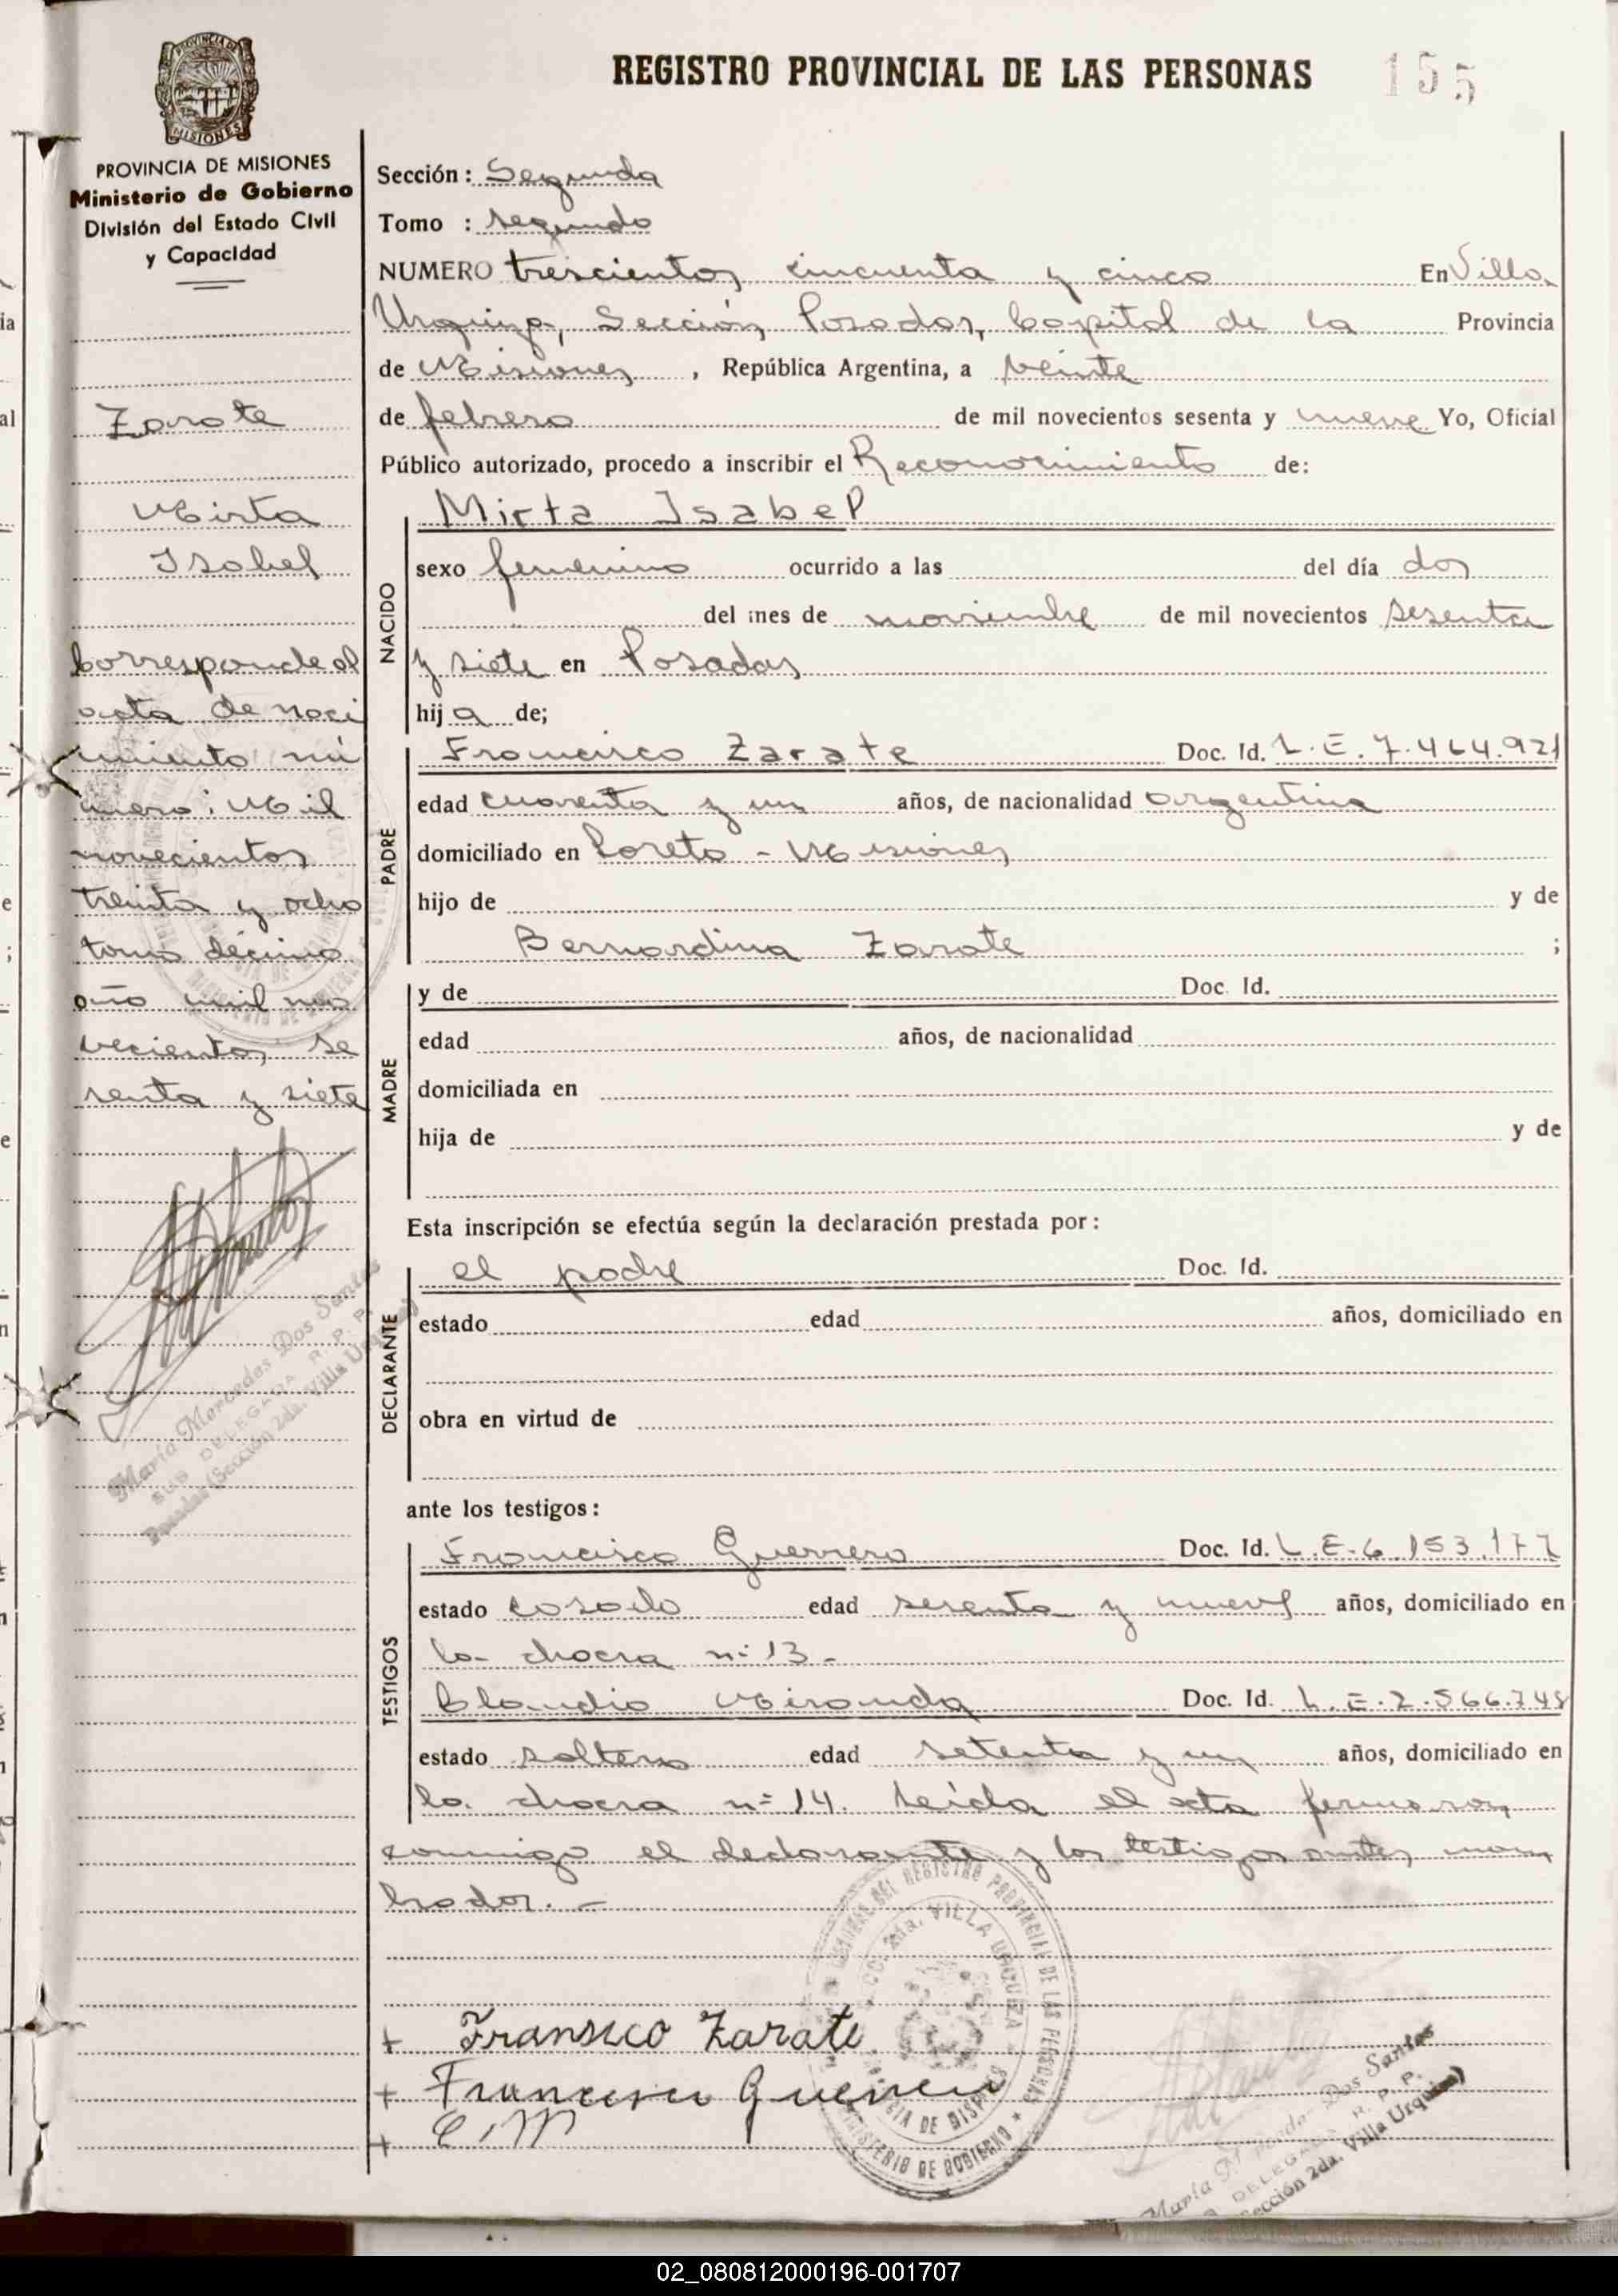 REGISTRO PROVINCIAL DE LAS PERSONAS 155
PROVINCIA DE MISIONES
MISIONES
PROVINCIA DE MISIONES
Ministerio de Gobierno
División del Estado Civil
y Capacidad
Zarate
Mirta
Isabel
Corresponde al
acta de naci
miento nú
mero: Mil
novecientos
treinta y ocho
tomo décimo
año mil no
vecientos se
senta y siete
María Mercedes Dos Santos
SUB DELEGADA R. P. P.
Posadas (Sección 2da. Villa Urquiza)
Sección: Segunda
Tomo : segundo
NUMERO trescientos cincuenta y cinco En Villa
Urquiza, Sección, Posadas, Capital de la Provincia
de Misiones, República Argentina, a veinte
de febrero de mil novecientos sesenta y nueve Yo, Oficial
Público autorizado, procedo a inscribir el Reconocimiento de:
NACIDO
Mirta Isabel
sexo femenino ocurrido a las del día dos
del mes de noviembre de mil novecientos sesenta
y siete en Posadas
hija de;
PADRE
Francisco Zarate Doc. Id. L.E. 7.464.921
edad cuarenta y un años, de nacionalidad argentina
domiciliado en Loreto - Misiones
hijo de y de
Bernardina Zarate ;
MADRE
y de Doc. Id.
edad años, de nacionalidad
domiciliada en
hija de y de
Esta inscripción se efectúa según la declaración prestada por:
DECLARANTE
el padre Doc. Id.
estado edad años, domiciliado en
obra en virtud de
ante los testigos:
TESTIGOS
Francisco Guerrero Doc. Id. L.E. 6.153.177
estado casado edad sesenta y nueve años, domiciliado en
la chacra n: 13 -
Claudio Miranda Doc. Id. L.E. 2.566.748
estado soltero edad setenta y un años, domiciliado en
la chacra n: 14. Leída el acta firmaron
conmigo el declarante y los testigos antes nom
brados. -
+ Fransico Zarate
+ Francisco Guerrero
+ C, M
REGISTRO PROVINCIAL DE LAS PERSONAS
VILLA URQUIZA
MINISTERIO DE GOBIERNO
Dos Santos
DELEGADA R. P. P.
Sección 2da. Villa Urquiza)
02_080812000196-001707